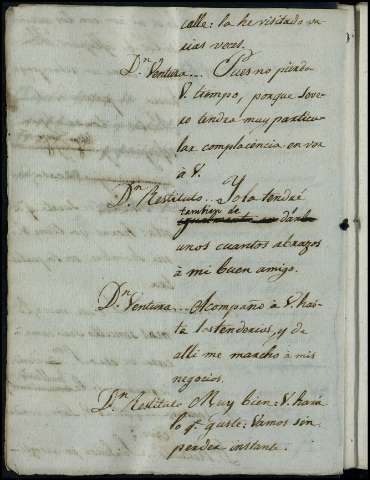 calle: la he visitado va
rias veces.
Dn Ventura... Pues no pierda
V. tiempo, porque
tendrá muy particu
lar complacencia en ver
à V.
Dn Restituto.. Yo la tendré
tambien de
darle
unos cuantos abrazos
à mi buen amigo.
Dn Ventura... Acompaño à V. has-
ta los tenderos, y de
alli me marcho à mis
negocios.
Dn Restituto Muy bien: V. hará
lo q.e guste: Vamos sin
perder instante.